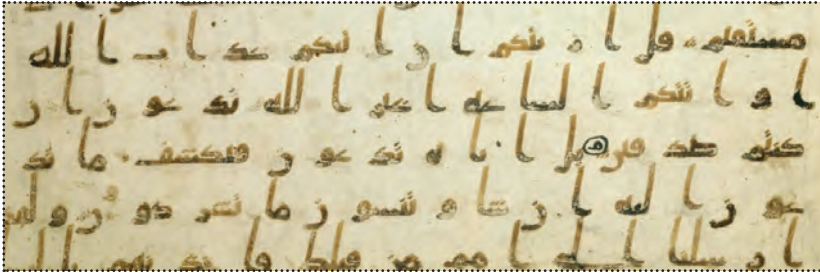 مستقيم قل اريتكم ان اتيكم عذاب الله
او اتتكم الساعه اغير الله تدعون ان
كنتم صدقين بل اياه تدعون فيكشف ما تد
عون اليه ان شا وتنسون ما تشركون ولقد
ارسلنا الى امم من قبلك فاخذنهم بالبا